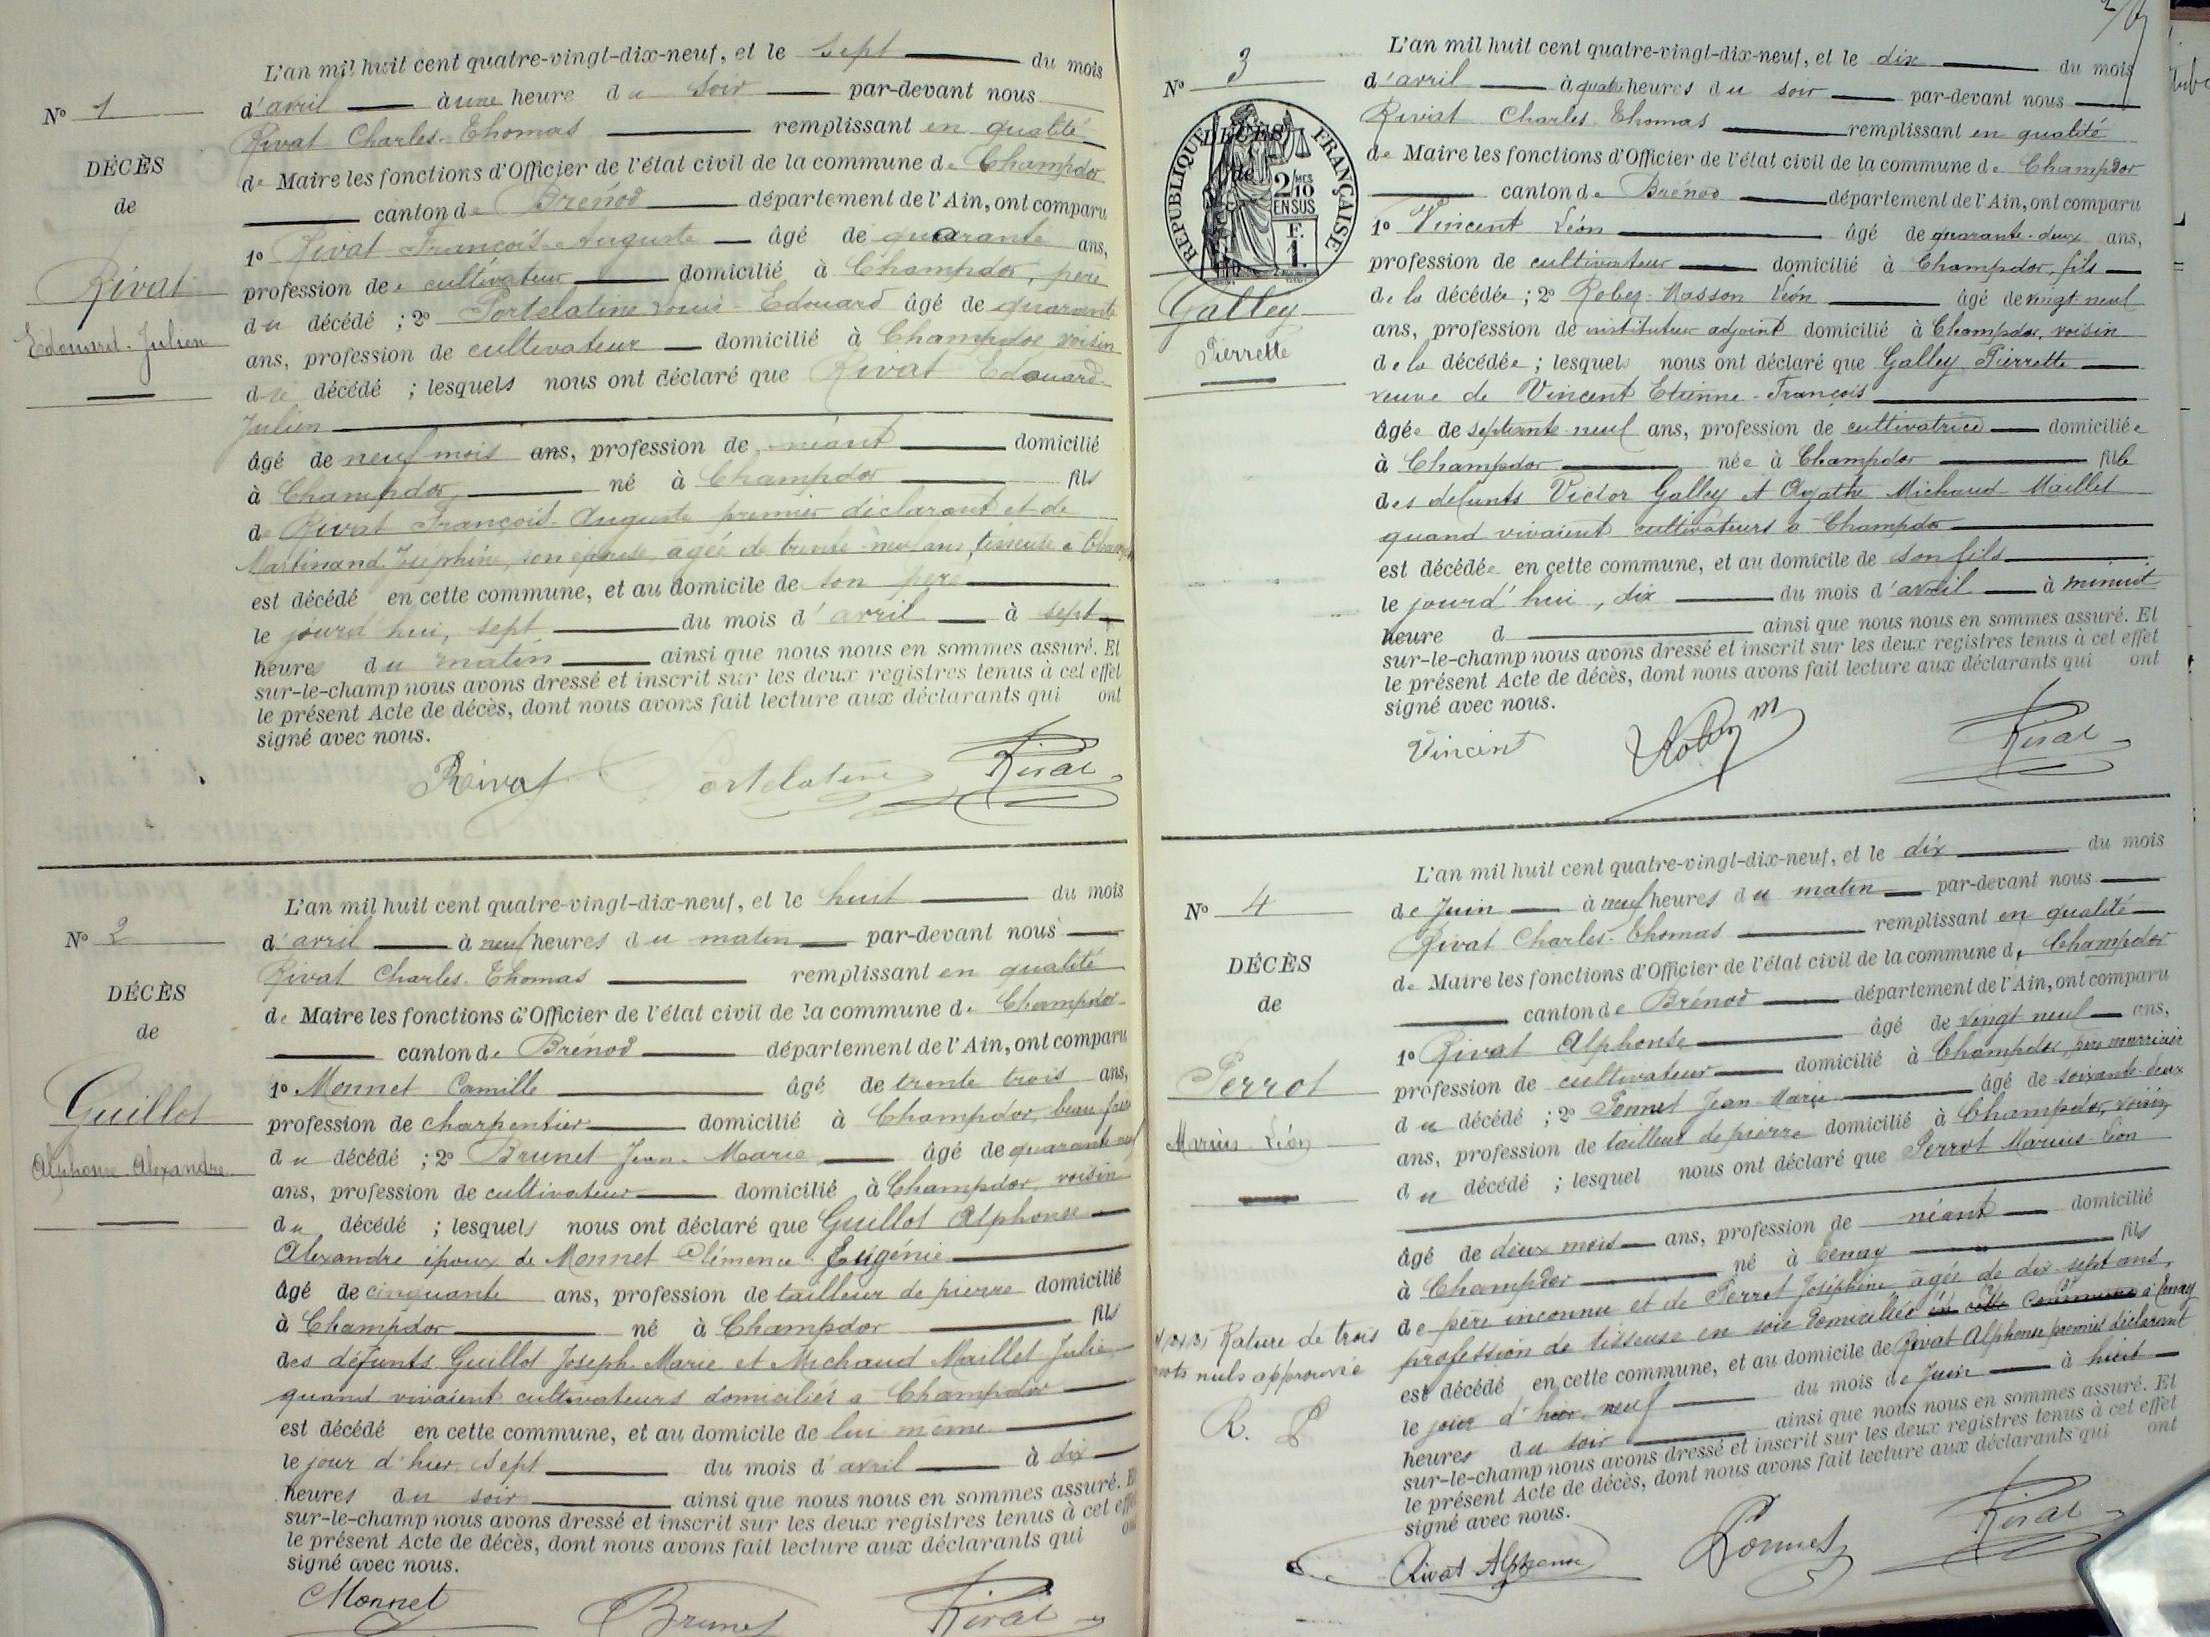 L'an mil huit cent quatre-vingt-dix-neuf, et le sept du mois
N° 1
d'avril à une heure du soir par-devant nous
Rivat Charles-Thomas remplissant en qualité
DÉCÈS
de Maire les fonctions d'Officier de l'état civil de la commune de Champdor
de
canton de Brénod département de l'Ain, ont comparu
1° Rivat François-Auguste âgé de quarante ans,
Rivat
profession de cultivateur domicilié à Champdor, père
du décédé ; 2° Portelatine Louis Edouard âgé de quarante
Edouard-Julien
ans, profession de cultivateur domicilié à Champdor voisin
du décédé ; lesquels nous ont déclaré que Rivat Edouard-
Julien
âgé de neuf mois ans, profession de néant domicilié
à Champdor né à Champdor fils
de Rivat François-Auguste premier déclarant et de
Martinand Joséphine, son épouse, âgée de trente-neuf ans, tisseuse à
est décédé en cette commune, et au domicile de son père
le jourd'hui, sept du mois d'avril à sept
heures du matin ainsi que nous nous en sommes assuré. Et
sur-le-champ nous avons dressé et inscrit sur les deux registres tenus à cet effet
le présent Acte de décès, dont nous avons fait lecture aux déclarants qui ont
signé avec nous.
Rivat Portelatine Rivat
L'an mil huit cent quatre-vingt-dix-neuf, et le huit du mois
N° 2
d'avril à neuf heures du matin par-devant nous
Rivat Charles-Thomas remplissant en qualité
DÉCÈS
de Maire les fonctions d'Officier de l'état civil de la commune de Champdor
de
canton de Brénod département de l'Ain, ont comparu
1° Monnet Camille âgé de trente trois ans,
Guillot
profession de charpentier domicilié à Champdor, beau frère
du décédé ; 2° Brunet Jean-Marie âgé de quarante neuf
Alphonse Alexandre
ans, profession de cultivateur domicilié à Champdor, voisin
du décédé ; lesquels nous ont déclaré que Guillot Alphonse
Alexandre époux de Monnet Clémence Eugénie
âgé de cinquante ans, profession de tailleur de pierre domicilié
à Champdor né à Champdor fils
des défunts Guillot Joseph-Marie et Michaud Maillet Julie
quand vivaient cultivateurs domiciliés à Champdor
est décédé en cette commune, et au domicile de lui même
le jour d'hier, sept du mois d'avril à dix
heures du soir ainsi que nous nous en sommes assuré. Et
sur-le-champ nous avons dressé et inscrit sur les deux registres tenus à cet effet
le présent Acte de décès, dont nous avons fait lecture aux déclarants qui ont
signé avec nous.
Monnet Brunet Rivat
L'an mil huit cent quatre-vingt-dix-neuf, et le dix du mois
N° 3
d'avril à quatre heures du soir par-devant nous
Rivat Charles-Thomas remplissant en qualité
DÉCÈS
RÉPUBLIQUE FRANÇAISE
2/10 MES EN SUS
F. 1.
de Maire les fonctions d'Officier de l'état civil de la commune de Champdor
de
canton de Brénod département de l'Ain, ont comparu
1° Vincent Léon âgé de quarante-deux ans,
profession de cultivateur domicilié à Champdor, fils
Galley
de la décédée ; 2° Robez-Masson Léon âgé de vingt-neuf
ans, profession de instituteur adjoint domicilié à Champdor, voisin
Pierrette
de la décédée ; lesquels nous ont déclaré que Galley Pierrette
veuve de Vincent Etienne-François
âgée de septante-neuf ans, profession de cultivatrice domiciliée
à Champdor née à Champdor fille
des défunts Victor Galley et Agathe Michaud-Maillet
quand vivaient cultivateurs à Champdor
est décédée en cette commune, et au domicile de son fils
le jourd'hui, dix du mois d'avril à minuit
heure d ainsi que nous nous en sommes assuré. Et
sur-le-champ nous avons dressé et inscrit sur les deux registres tenus à cet effet
le présent Acte de décès, dont nous avons fait lecture aux déclarants qui ont
signé avec nous.
Vincent Robez m Rivat
L'an mil huit cent quatre-vingt-dix-neuf, et le dix du mois
N° 4
de Juin à neuf heures du matin par-devant nous
Rivat Charles-Thomas remplissant en qualité
DÉCÈS
de Maire les fonctions d'Officier de l'état civil de la commune de Champdor
de
canton de Brénod département de l'Ain, ont comparu
1° Rivat Alphonse âgé de vingt neuf ans,
Perrot
profession de cultivateur domicilié à Champdor, père nourricier
du décédé ; 2° Ponnet Jean-Marie âgé de soixante-deux
Marius-Léon
ans, profession de tailleur de pierre domicilié à Champdor, voisin
du décédé ; lesquel nous ont déclaré que Perrot Marius-Léon
âgé de deux mois ans, profession de néant domicilié
à Champdor né à Tenay fils
de père inconnu et de Perrot Joséphine âgée de dix-sept ans,
profession de tisseuse en soie domiciliée en cette commune à Tenay
Rature de trois
mots nuls approuvée
R. P
est décédé en cette commune, et au domicile de Rivat Alphonse premier déclarant
le jour d'hier, neuf du mois de Juin à huit
heures du soir ainsi que nous nous en sommes assuré. Et
sur-le-champ nous avons dressé et inscrit sur les deux registres tenus à cet effet
le présent Acte de décès, dont nous avons fait lecture aux déclarants qui ont
signé avec nous.
Rivat Alphonse Ponnet Rivat